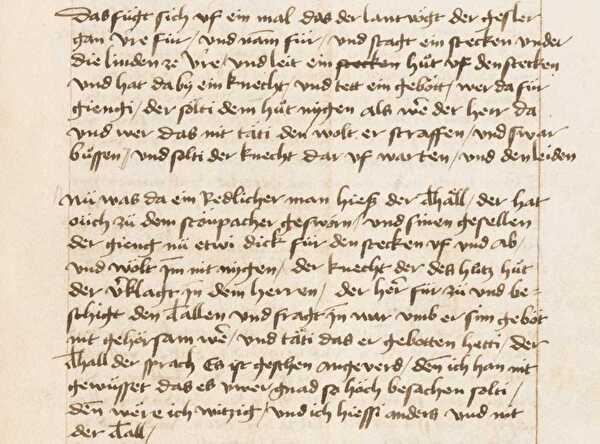 Das fuͦgt sich vf ein mal das der lantvoͤgt der gesler
gan vre fuͦr / vnd nam für / vnd stagt ein stecken vnder
die linden ze vre / vnd leit ein stecken huͦt vf den stecken
vnd hat da by ein knecht / vnd tett ein gebott / wer da für
giengi / der solti dem huͦt nygen als wẽ der herr da
vnd wer das nit täti den wolt er straffen / vnd swar
buͤssen / vnd solti der knecht dar vf warten / vnd den leiden
Nuͦ was da ein Redlicher man hiess der Thäll / der hat
ouch zuͦ dem stoupacher gesworn / vnd sinen gesellen
der gieng nuͦ etwi dick für den stecken vf vnd ab /
vnd wolt im nit nygen / der knecht der des huͦtz huͦt
der v̉klagt in dem herren / der her̉ fuͦr zuͦ vnd be-
schigt den Tallen vnd fragt in war vmb er sim gebot
nit gehorsam wẽ / vnd täti das er gebotten hetti / der
Thall der sprach Es ist geschen an geverd / den̄ ich han nit
gewüsset das es vwer gnad so hoch besachen solti /
den̄ were ich witzig / vnd ich hiessi anders vnd nit
der Tall /